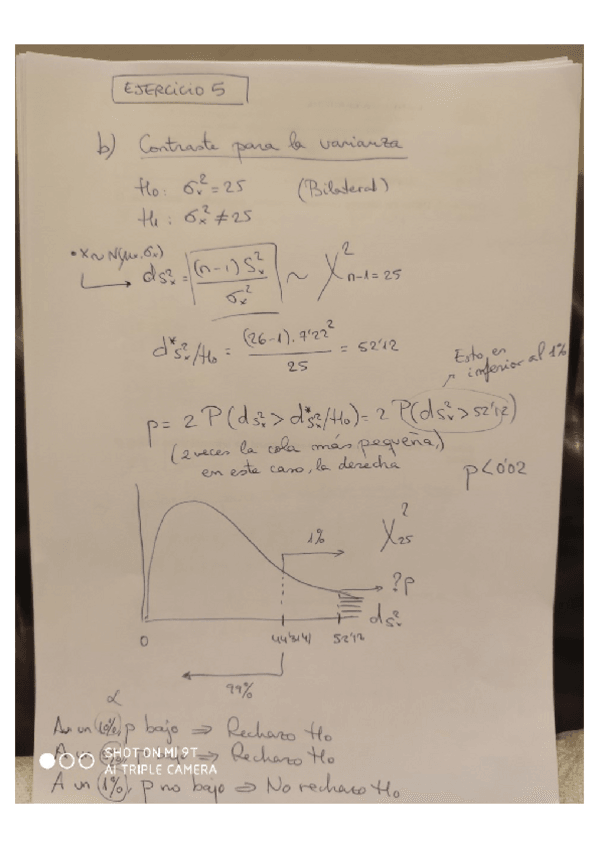 EJERCICIO 5
b) Contraste para la varianza
H₀: σₓ² = 25 (Bilateral)
H₁: σₓ² ≠ 25
• X ~ N(μₓ, σₓ)
→ dSₓ² = (n-1) Sₓ² / σₓ² ~ χ² n-1=25
d*Sₓ²/H₀ = (26-1) · 7'22² / 25 = 52'12
Esto es
inferior al 1%
p = 2 P(dSₓ² > d*Sₓ²/H₀) = 2 P(dSₓ² > 52'12)
(2 veces la cola más pequeña,)
en este caso, la derecha
p < 0'02
1%
χ² 25
?p
dSₓ²
0 44'3141 52'12
99%
α
A un 10%, p bajo ⇒ Rechazo H₀
A ⇒ Rechazo H₀
SHOT ON MI 9T
AI TRIPLE CAMERA
A un 1%, p no bajo ⇒ No rechazo H₀